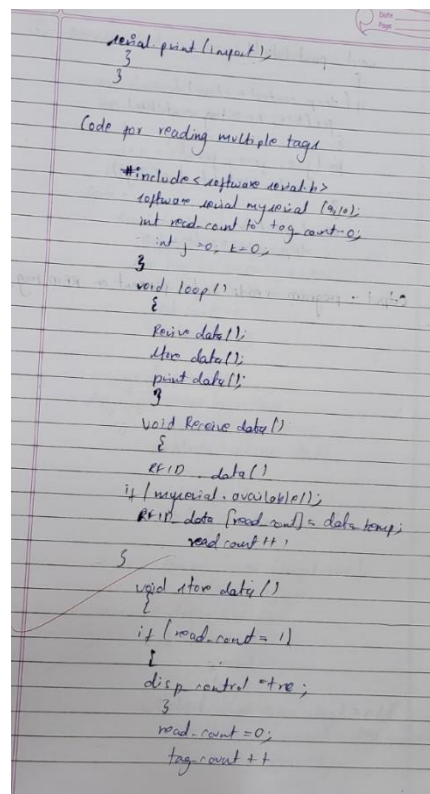 Date
Page
serial.print(input);
}
}
Code for reading multiple tags
#include<software serial.h>
software serial myserial (9,10);
int read_count to tag_count=0;
int j=0, k=0;
}
void loop()
{
Recive data();
store data();
print data();
}
void Receive data()
{
RFID_data()
if (myserial.available();
RFID_data [read_cont] = data temp;
read count ++;
}
void store data()
{
if (read_count = 1)
{
disp_control = tre;
}
read_count = 0;
tag_count ++